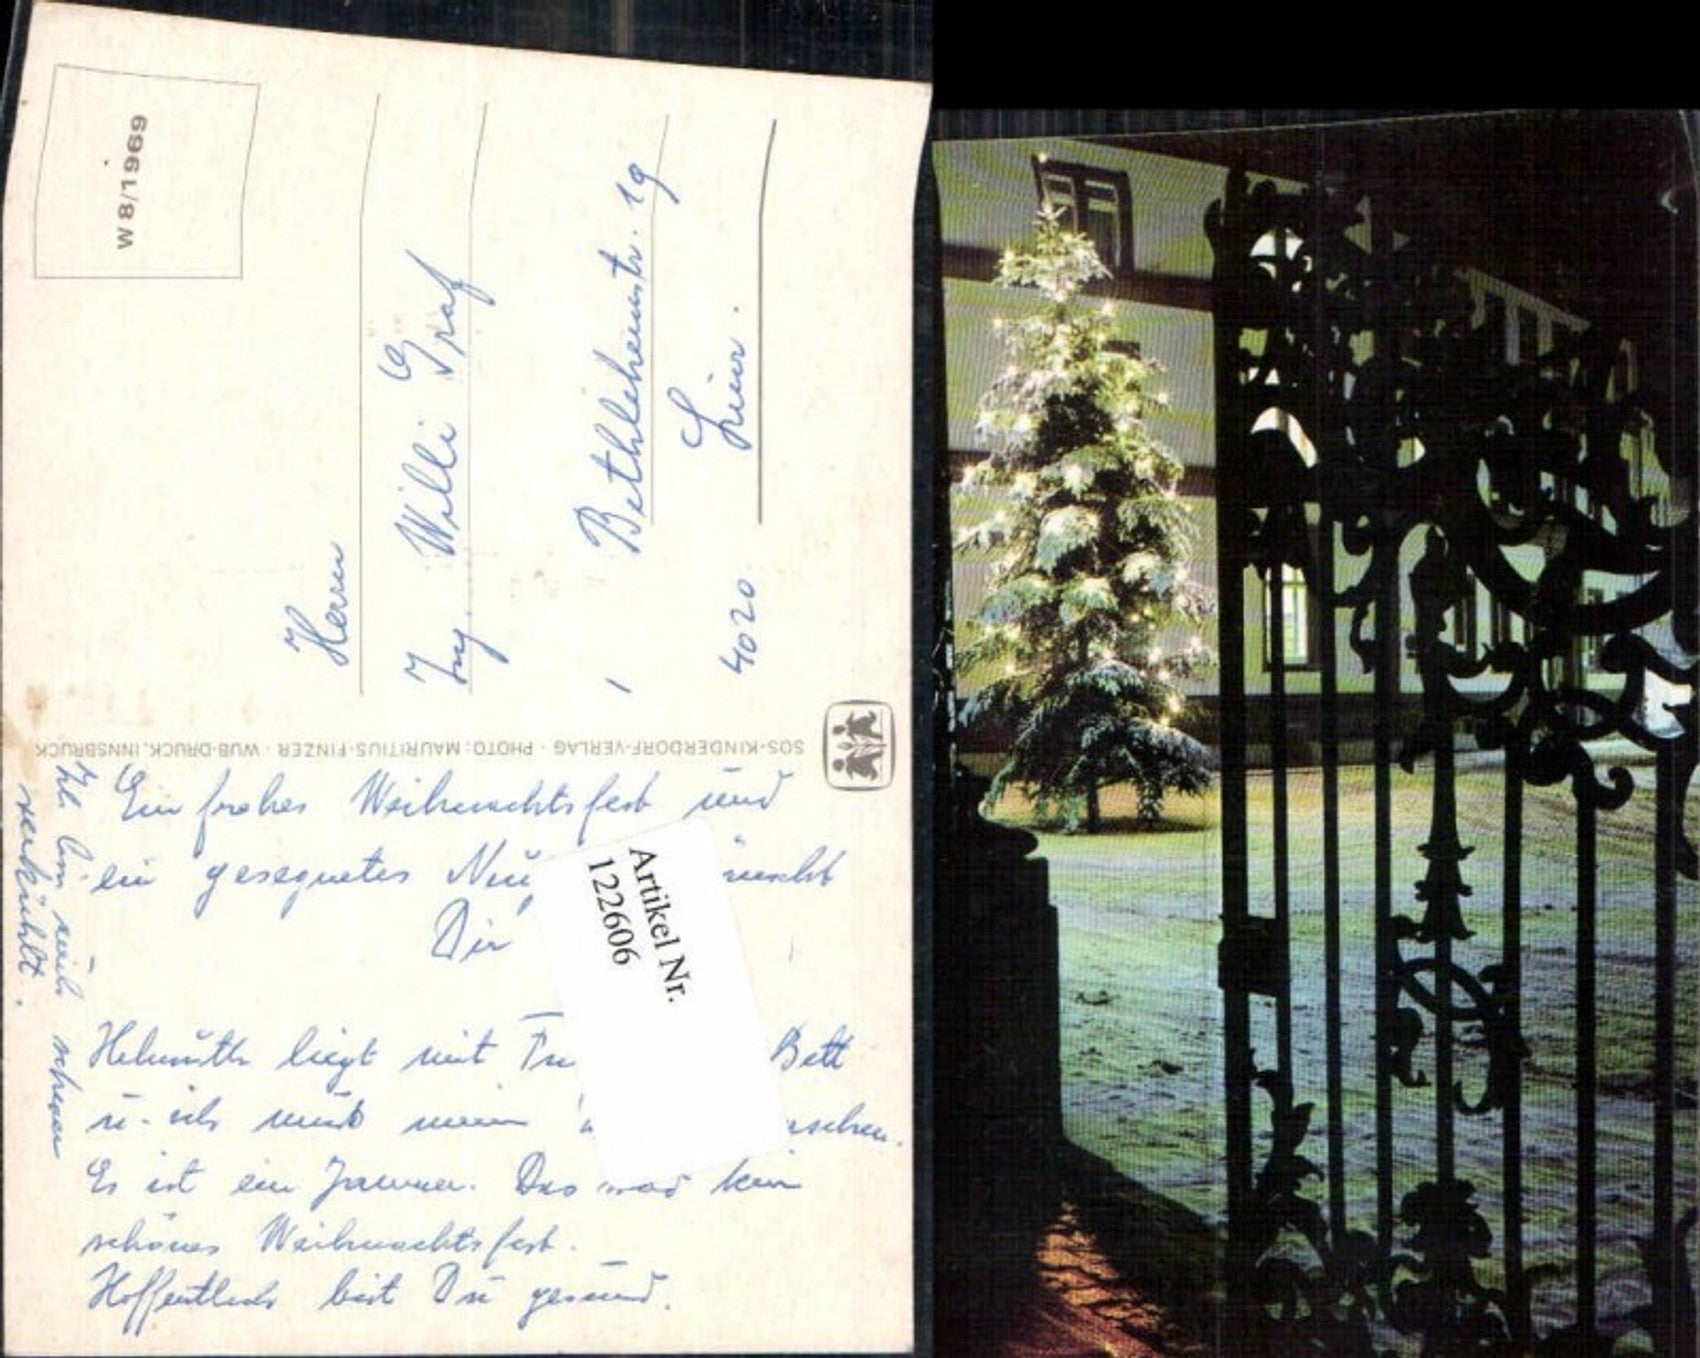 W 8/1969
Herrn
Ing. Willi Graf
Bethlehemstr. 19
4020 Linz.
SOS-KINDERDORF-VERLAG · PHOTO: MAURITIUS-FINZER · WUB-DRUCK, INNSBRUCK
Ein frohes Weihnachtsfest und
ein gesegnetes Neu
Dir
Artikel Nr.
122606
Helmuth liegt mit Bett
u. ich muß mein
Es ist ein Jammer. Das war kein
schönes Weihnachtsfest.
Hoffentlich bist Du gesund.
Ich bin auch schon
verkühlt.